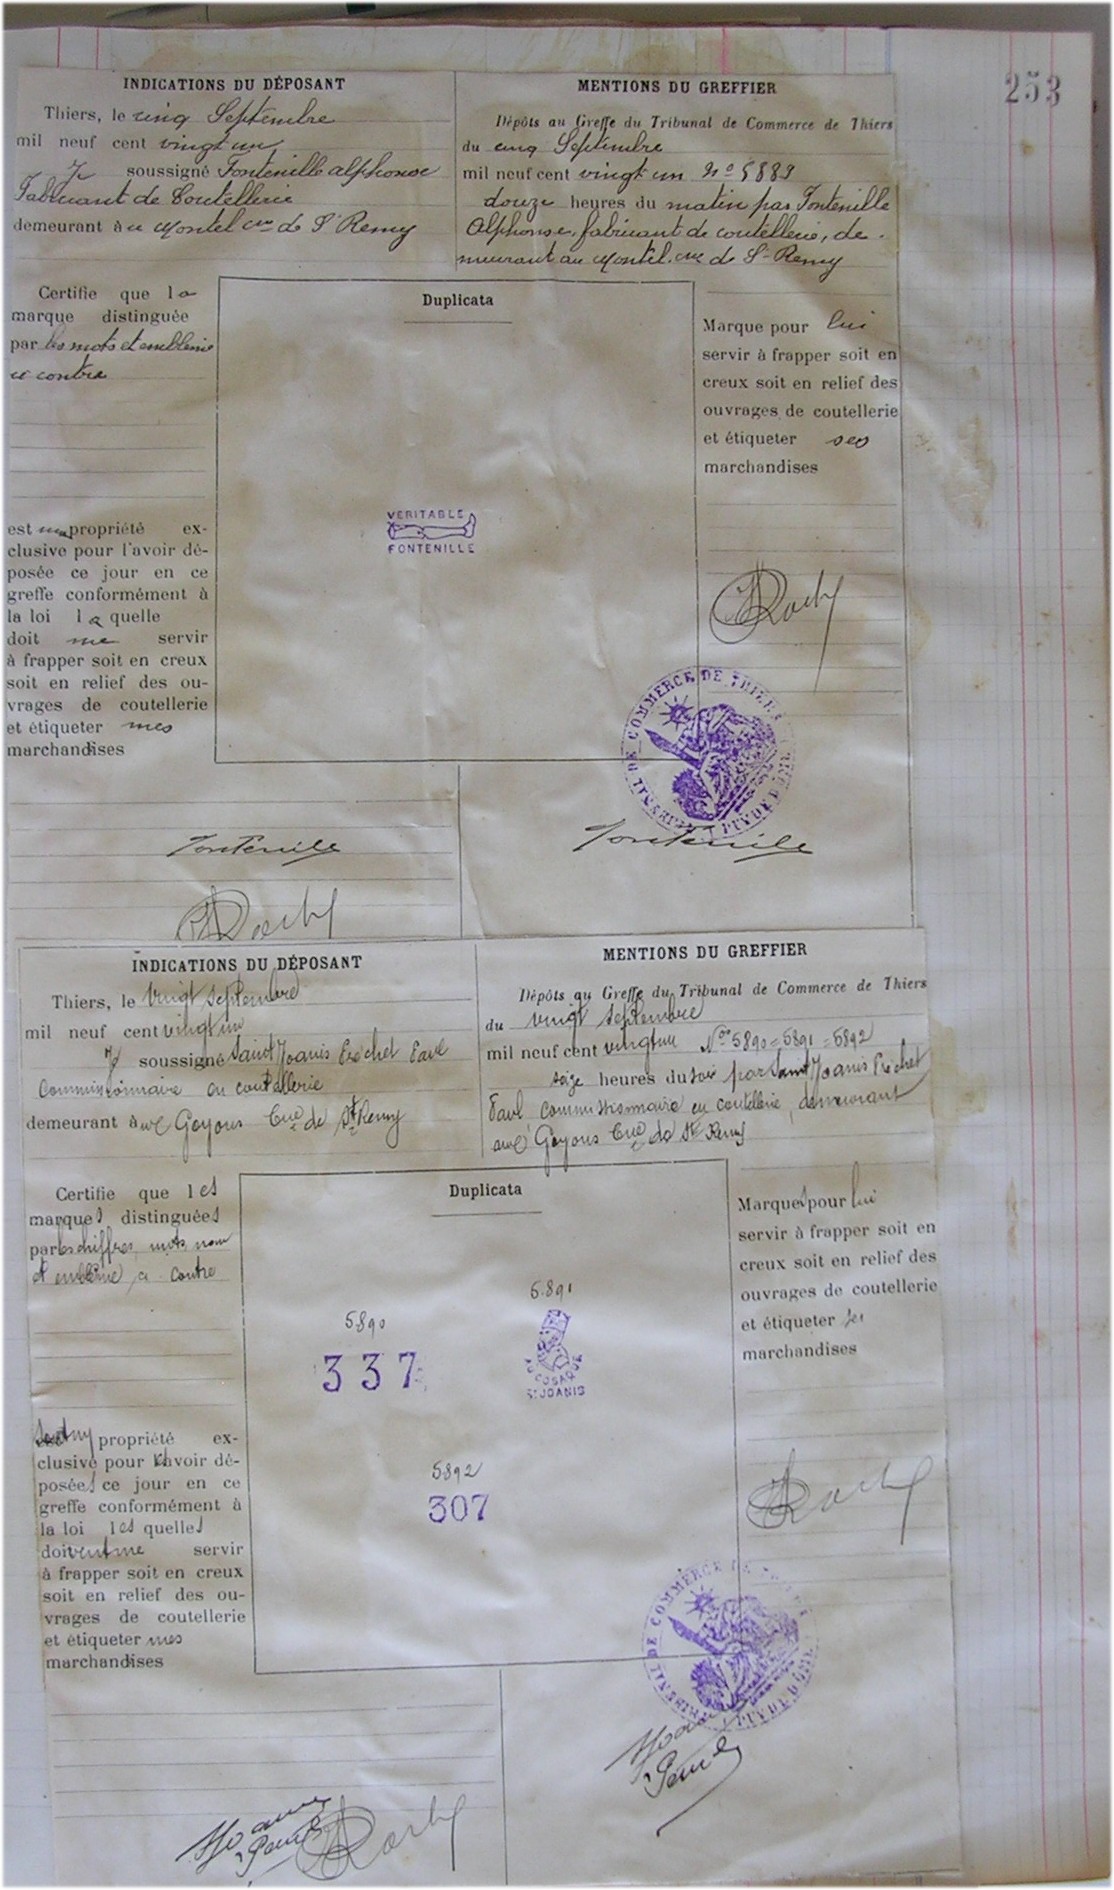 253
INDICATIONS DU DÉPOSANT
Thiers, le cinq Septembre
mil neuf cent vingt un
Je soussigné Fontenille alphonse
Fabricant de Coutellerie
demeurant à au Montel cne de St Remy
Certifie que la
marque distinguée
par les mots et emblème
ci contre
est ma propriété ex-
clusive pour l'avoir dé-
posée ce jour en ce
greffe conformément à
la loi laquelle
doit me servir
à frapper soit en creux
soit en relief des ou-
vrages de coutellerie
et étiqueter mes
marchandises
Duplicata
VERITABLE
FONTENILLE
MENTIONS DU GREFFIER
Dépôts au Greffe du Tribunal de Commerce de Thiers
du cinq Septembre
mil neuf cent vingt un No 5889
douze heures du matin par Fontenille
Alphonse, fabricant de coutellerie, de-
meurant au Montel, cne de St Remy
Marque pour lui
servir à frapper soit en
creux soit en relief des
ouvrages de coutellerie
et étiqueter ses
marchandises
TRIBUNAL DE COMMERCE DE THIERS
PUY DE DOME
Fontenille
Fontenille
INDICATIONS DU DÉPOSANT
Thiers, le Vingt septembre
mil neuf cent vingt un
Je soussigné Saint Joanis Paul
Commissionnaire en coutellerie
demeurant à Goyons Cne de St Remy
Certifie que les
marques distinguées
par les chiffres, mots, nom
et emblème, ci contre
sont my propriété ex-
clusive pour l'avoir dé-
posées ce jour en ce
greffe conformément à
la loi lesquelles
doivent me servir
à frapper soit en creux
soit en relief des ou-
vrages de coutellerie
et étiqueter mes
marchandises
Duplicata
5891
5890
337
AU COSAQUE
ST JOANIS
5892
307
MENTIONS DU GREFFIER
Dépôts au Greffe du Tribunal de Commerce de Thiers
du vingt septembre
mil neuf cent vingt un Nos 5890 = 5891 = 5892
seize heures du soir par Saint Joanis
Paul commissionnaire en coutellerie, demeurant
Goyons Cne de St Remy
Marques pour lui
servir à frapper soit en
creux soit en relief des
ouvrages de coutellerie
et étiqueter ses
marchandises
TRIBUNAL DE COMMERCE DE THIERS
PUY DE DOME